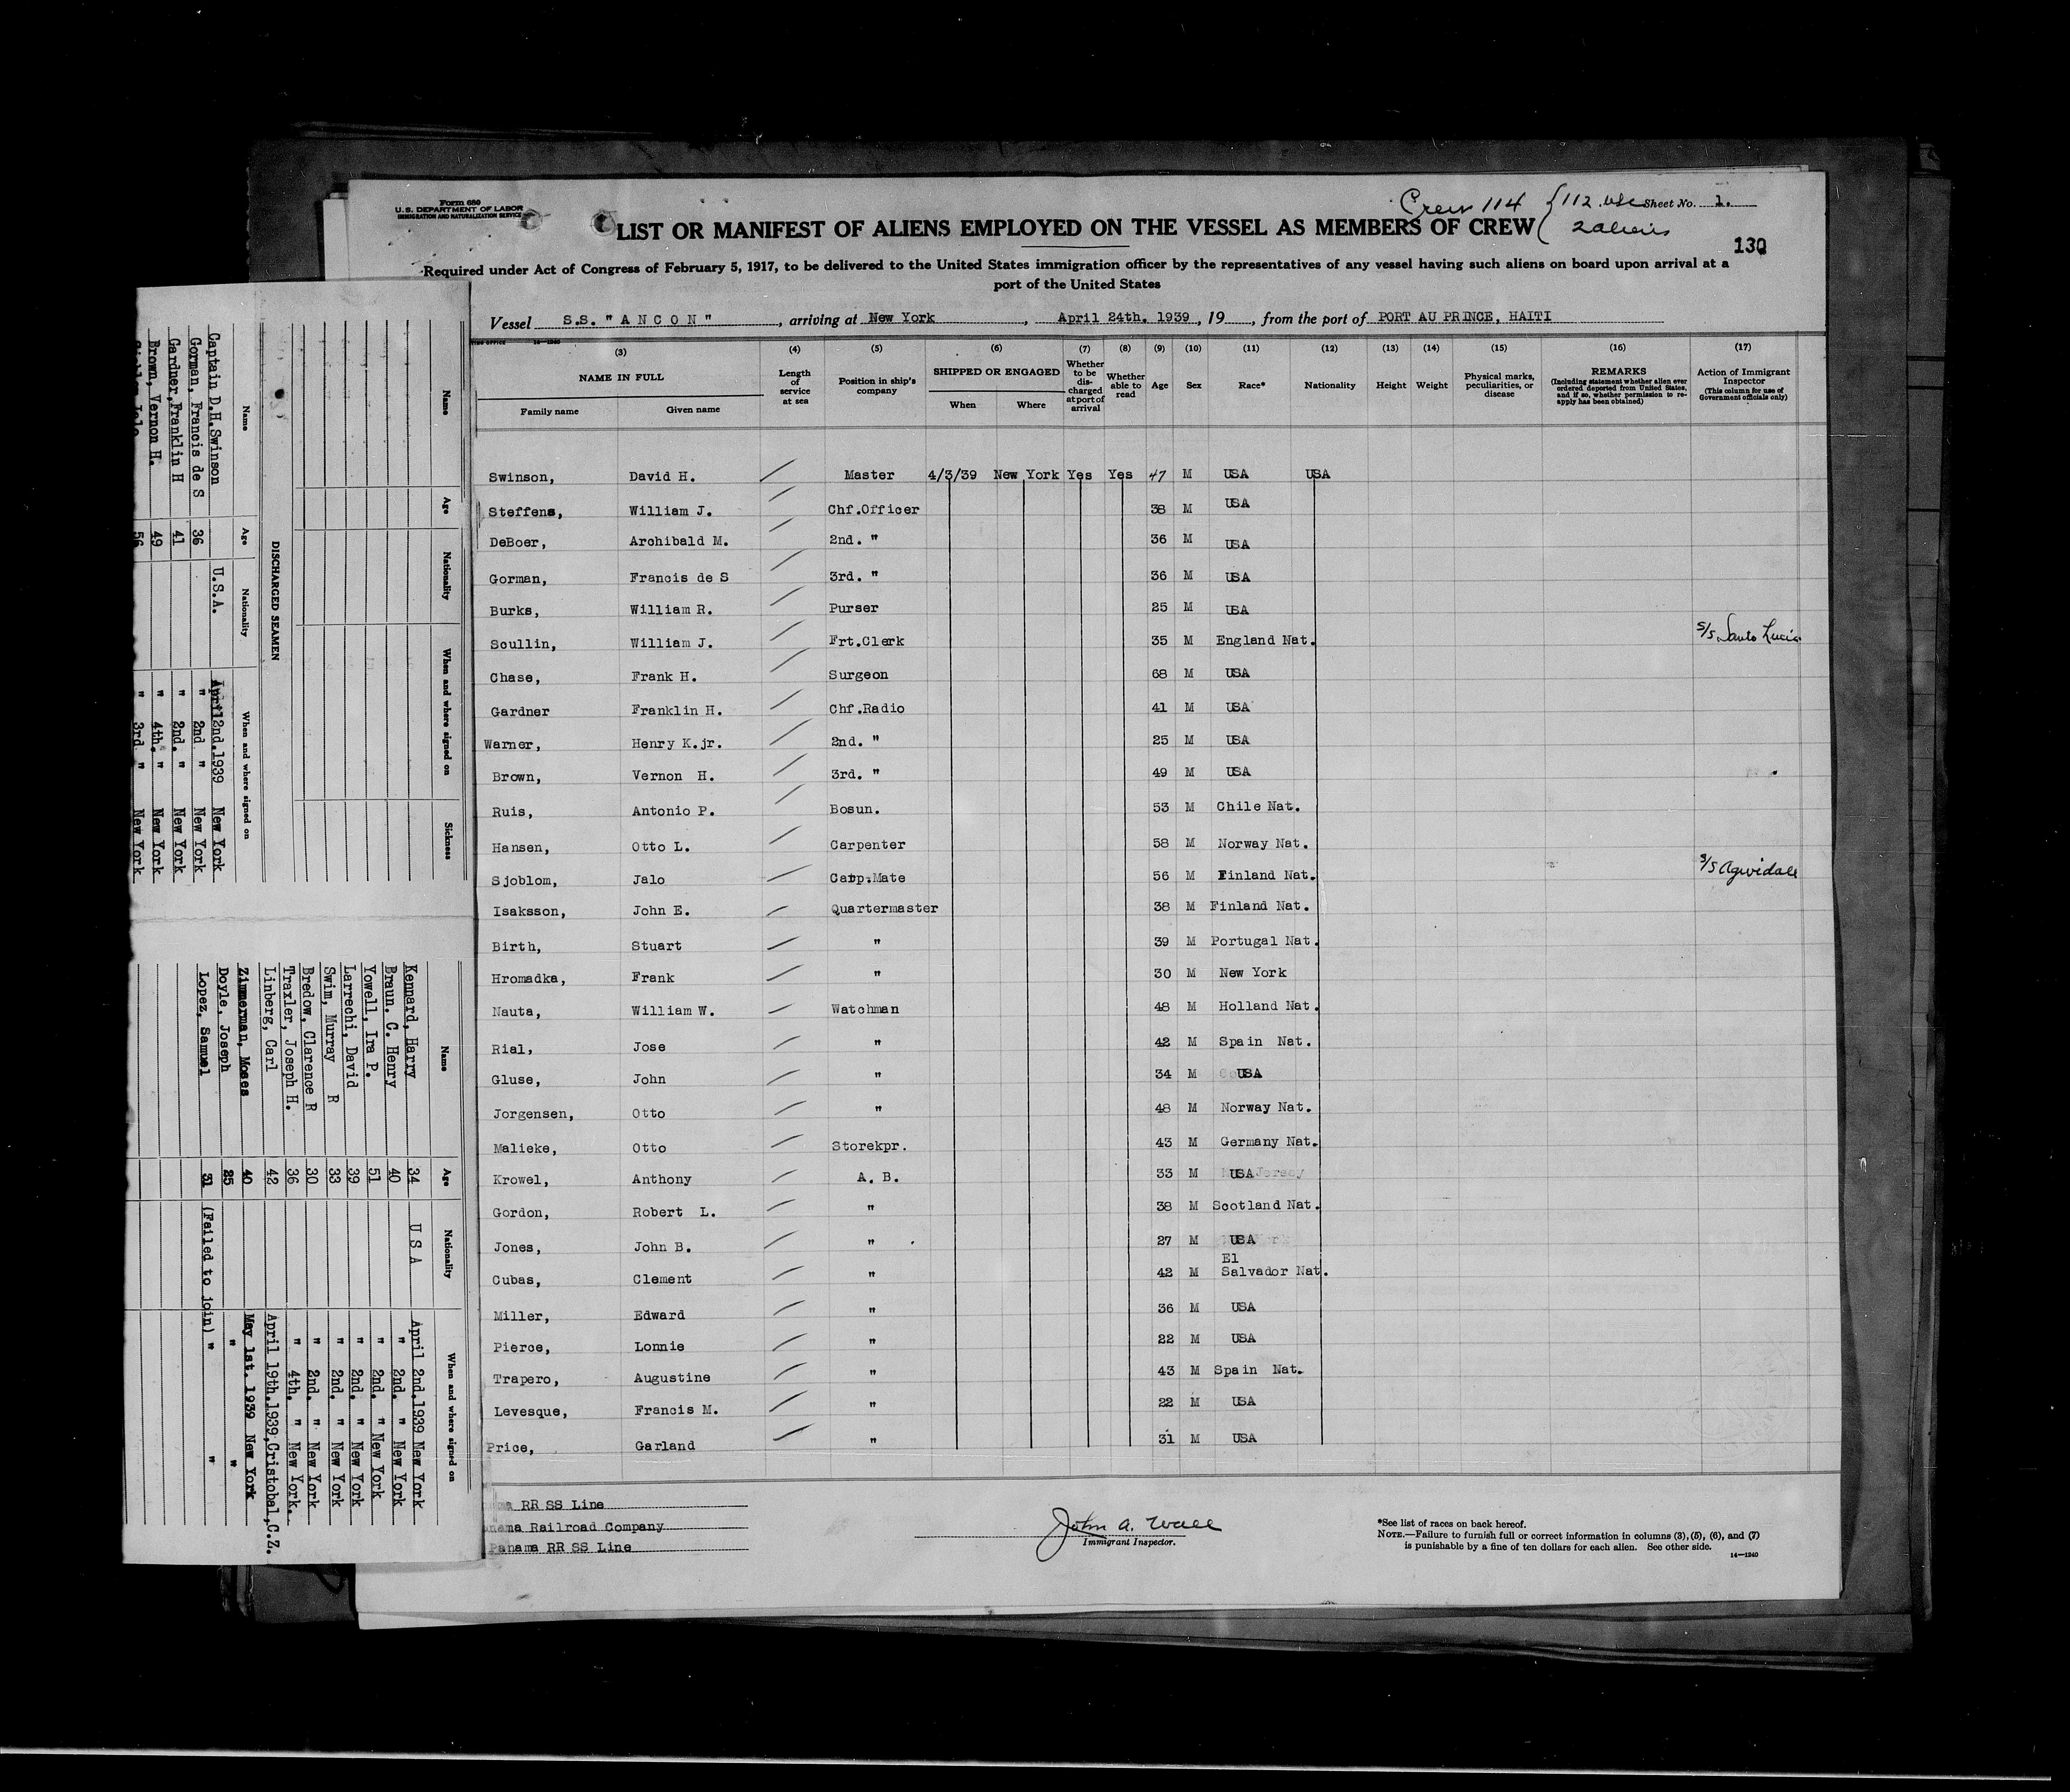 Form 689
U.S. DEPARTMENT OF LABOR
IMMIGRATION AND NATURALIZATION SERVICE
Crew 114 { 112 USC
2 aliens
Sheet No. 1.
LIST OR MANIFEST OF ALIENS EMPLOYED ON THE VESSEL AS MEMBERS OF CREW
130
Required under Act of Congress of February 5, 1917, to be delivered to the United States immigration officer by the representatives of any vessel having such aliens on board upon arrival at a
port of the United States
Vessel S.S. " A N C O N " , arriving at New York , April 24th. 1939 , 19 , from the port of PORT AU PRINCE, HAITI
(3) (4) (5) (6) (7) (8) (9) (10) (11) (12) (13) (14) (15) (16) (17)
NAME IN FULL
Family name Given name
Length of service at sea
Position in ship's company
SHIPPED OR ENGAGED
When Where
Whether to be discharged at port of arrival
Whether able to read
Age
Sex
Race*
Nationality
Height
Weight
Physical marks, peculiarities, or disease
REMARKS
(Including statement whether alien ever ordered deported from United States, and if so, whether permission to reapply has been obtained)
Action of Immigrant Inspector
(This column for use of Government officials only)
Swinson, David H. Master 4/3/39 New York Yes Yes 47 M USA USA
Steffens, William J. Chf.Officer 38 M USA
DeBoer, Archibald M. 2nd. " 36 M USA
Gorman, Francis de S 3rd. " 36 M USA
Burks, William R. Purser 25 M USA
Scullin, William J. Frt.Clerk 35 M England Nat. S/S Santa Lucia
Chase, Frank H. Surgeon 68 M USA
Gardner Franklin H. Chf.Radio 41 M USA
Warner, Henry K.jr. 2nd. " 25 M USA
Brown, Vernon H. 3rd. " 49 M USA
Ruis, Antonio P. Bosun. 53 M Chile Nat.
Hansen, Otto L. Carpenter 58 M Norway Nat.
Sjoblom, Jalo Carp.Mate 56 M Finland Nat. S/S Agwidale
Isaksson, John E. Quartermaster 38 M Finland Nat.
Birth, Stuart " 39 M Portugal Nat.
Hromadka, Frank " 30 M New York
Nauta, William W. Watchman 48 M Holland Nat.
Rial, Jose " 42 M Spain Nat.
Gluse, John " 34 M USA
Jorgensen, Otto " 48 M Norway Nat.
Malieke, Otto Storekpr. 43 M Germany Nat.
Krowel, Anthony A. B. 33 M USA
Gordon, Robert L. " 38 M Scotland Nat.
Jones, John B. " 27 M USA
Cubas, Clement " 42 M El Salvador Nat.
Miller, Edward " 36 M USA
Pierce, Lonnie " 22 M USA
Trapero, Augustine " 43 M Spain Nat.
Levesque, Francis M. " 22 M USA
Price, Garland " 31 M USA
RR SS Line
Railroad Company
Panama RR SS Line
John A. Wall
Immigrant Inspector.
*See list of races on back hereof.
NOTE.—Failure to furnish full or correct information in columns (3), (5), (6), and (7)
is punishable by a fine of ten dollars for each alien. See other side.
14—1240
Name Age Nationality When and where signed on Sickness
DISCHARGED SEAMEN
Name Age Nationality When and where signed on
Captain D.H.Swinson U.S.A. April 2nd.1939 New York
Gorman, Francis de S 36 " 2nd " New York
Gardner,Franklin H 41 " 2nd. " New York
Brown, Vernon H. 49 " 4th. " New York
56 " 3rd. " New York
Name Age Nationality When and where signed on
Kennard, Harry 34 U S A April 2nd.1939 New York
Braun. C. Henry 40 " 2nd. " New York
Yowell, Ira P. 51 " 2nd. " New York
Larrechi, David 39 " 2nd. " New York
Swim, Murray R 33 " 2nd. " New York
Bredow, Clarence R 30 " 2nd. " New York
Traxler, Joseph H. 36 " 4th. " New York.
Linberg, Carl 42 April 19th.1939,Cristobal,C.Z.
Zimmerman, Moses 40 May 1st. 1939 New York
Doyle, Joseph 25 " "
Lopez, Samuel 31 (Failed to join) " "